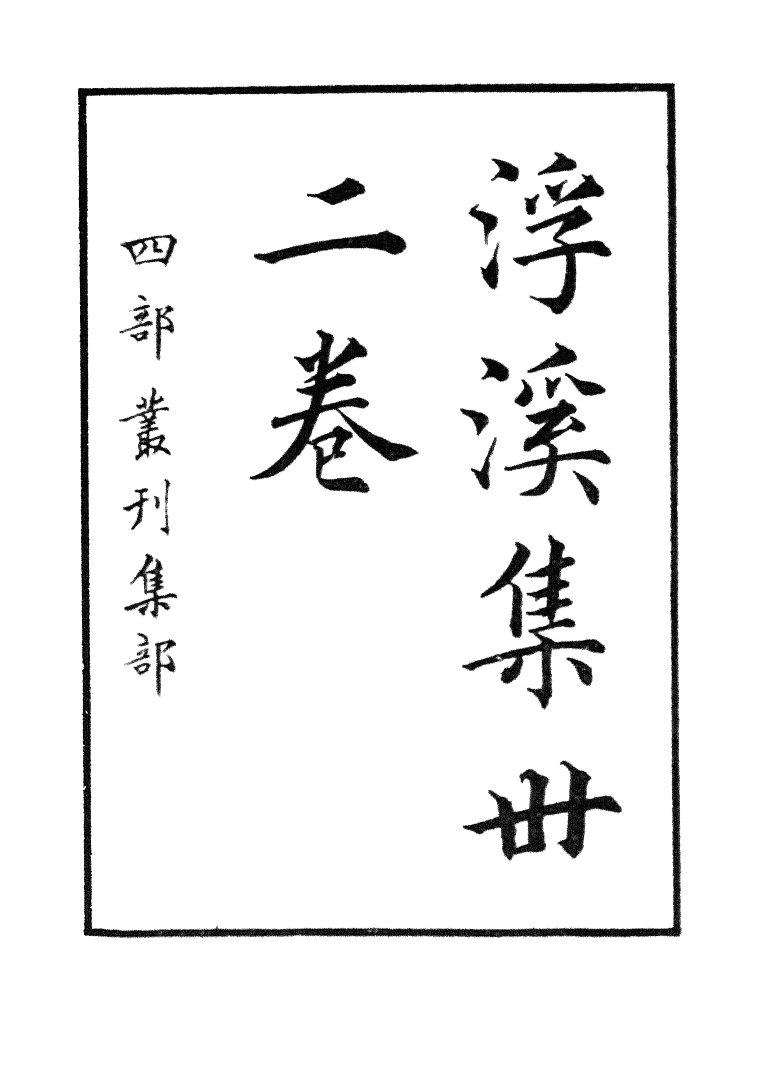 浮溪集卅
二卷
四部叢刊集部